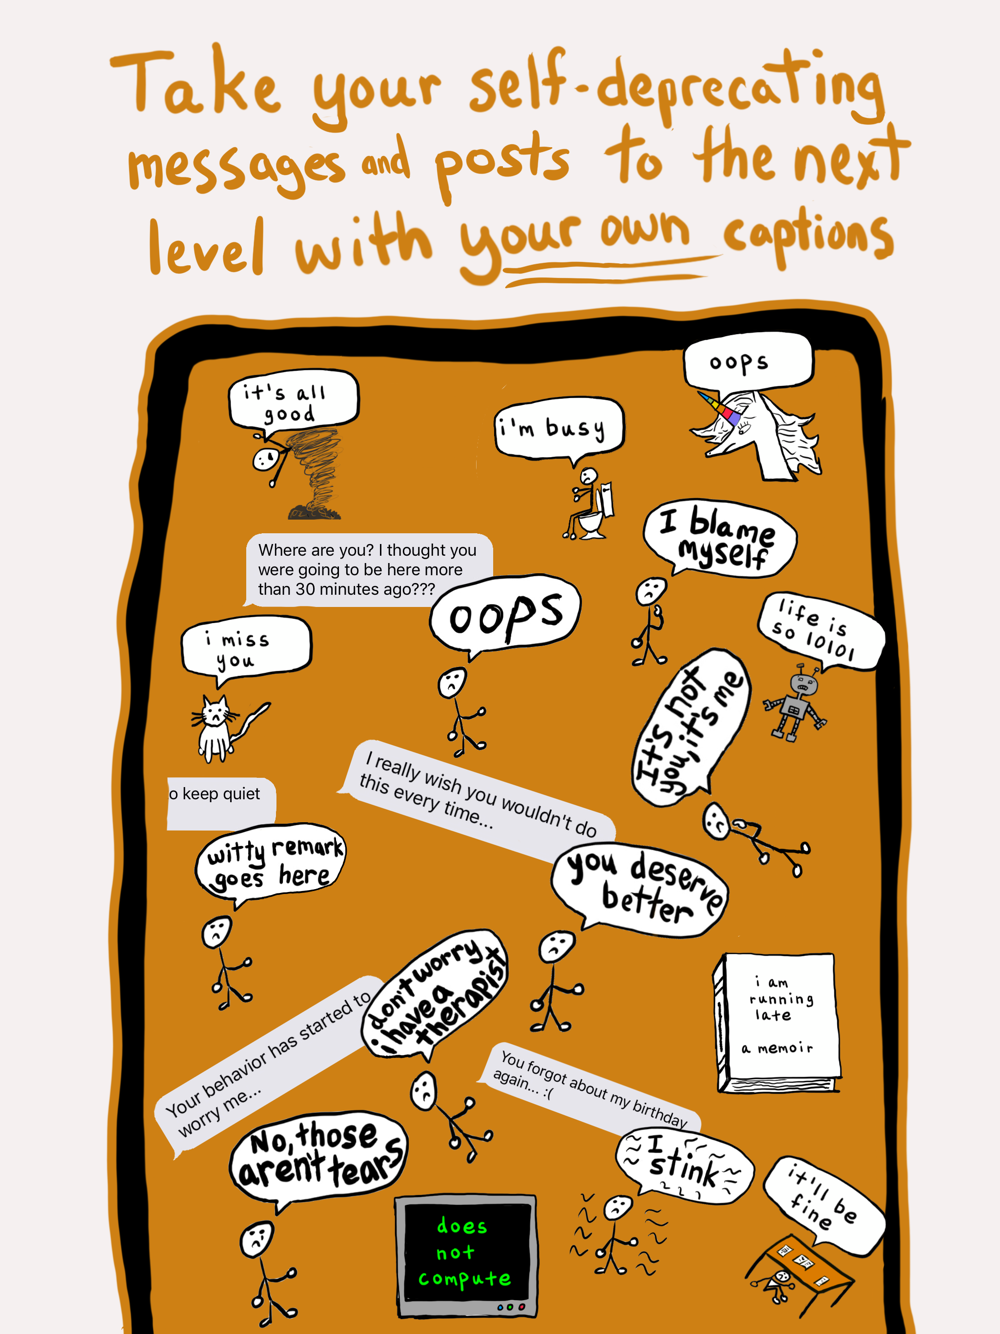 Take your self-deprecating
messages and posts to the next
level with your own captions
it's all
good
i'm busy
oops
I blame
myself
Where are you? I thought you
were going to be here more
than 30 minutes ago???
oops
life is
so 10101
i miss
you
It's not
you, it's me
I really wish you wouldn't do
this every time...
o keep quiet
witty remark
goes here
you deserve
better
don't worry
i have a
therapist
i am
running
late
a memoir
Your behavior has started to
worry me...
You forgot about my birthday
again... :(
No, those
aren't tears
I
stink
it'll be
fine
does
not
compute